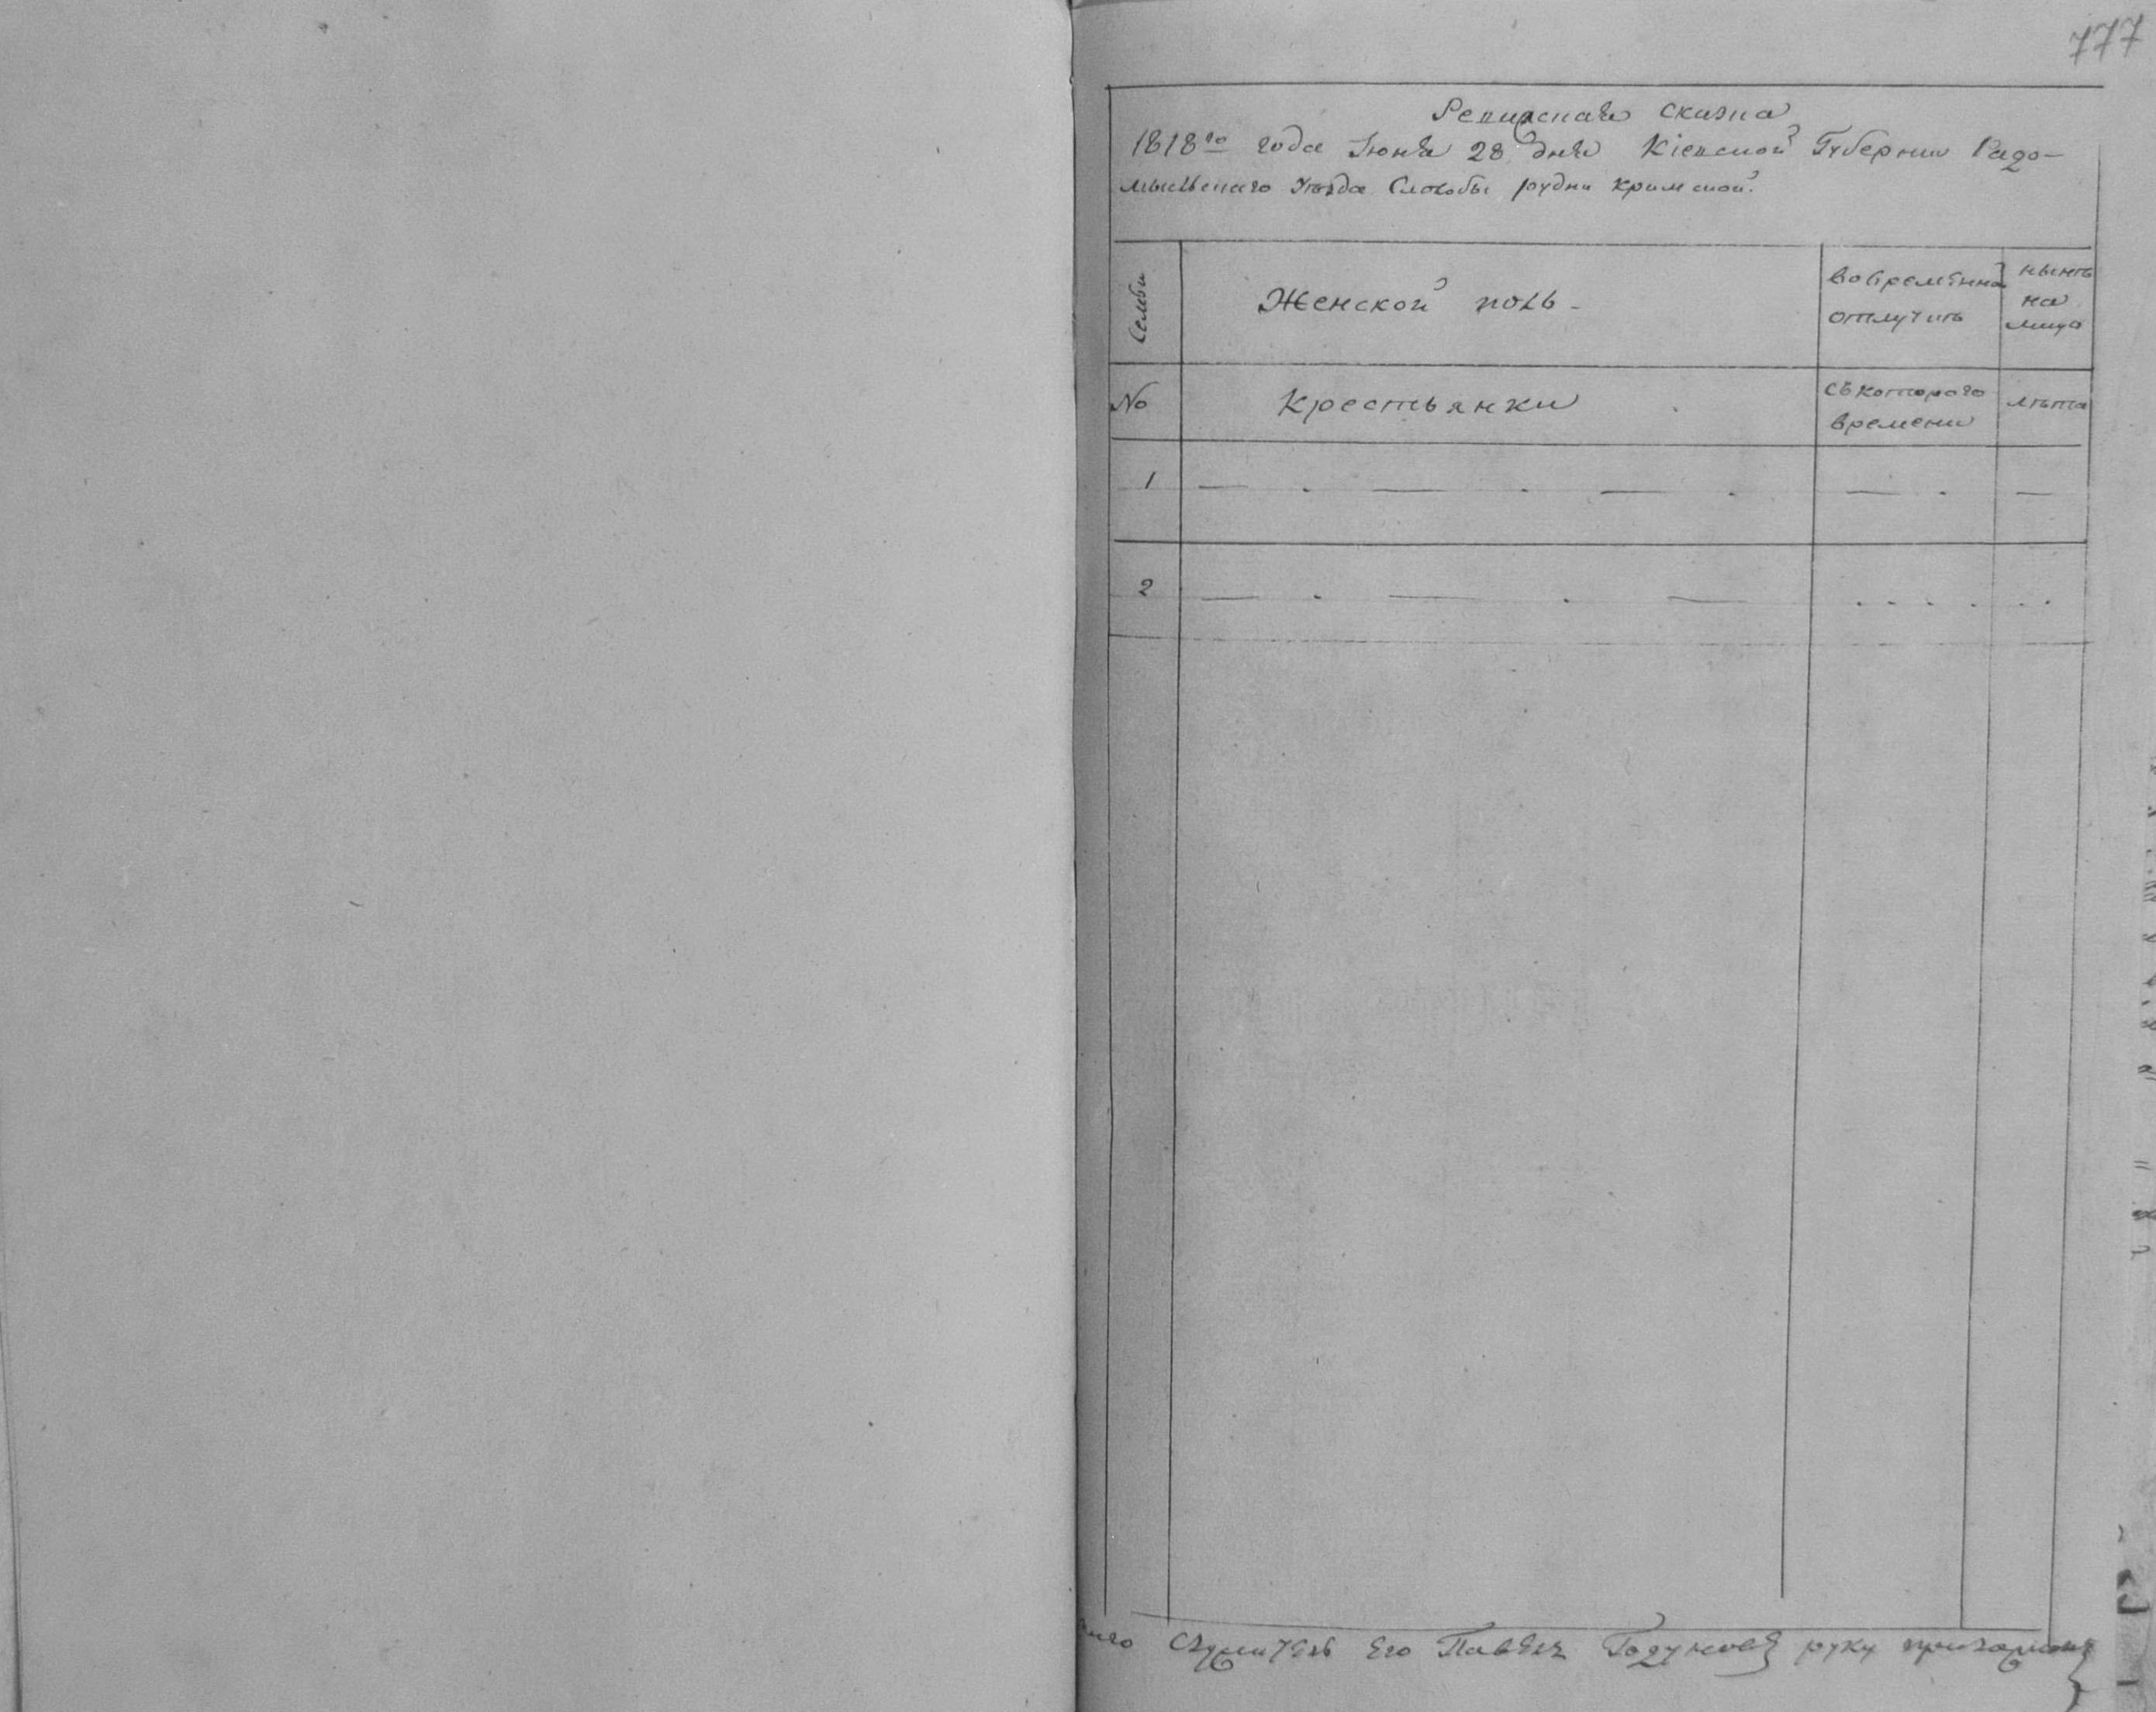 777
Ревизская сказка
1818го года Июня 28 дня Кіевской Губернии Радо-
мысльскаго Уѣзда Слободы рудни кримской
Семьи
Женской полъ -
во временной
отлучкѣ
нынѣ
на
лицо
No
Крестьянки
съ котораго
времени
лѣта
1
2
его Павелъ Годуновъ руку приложилъ